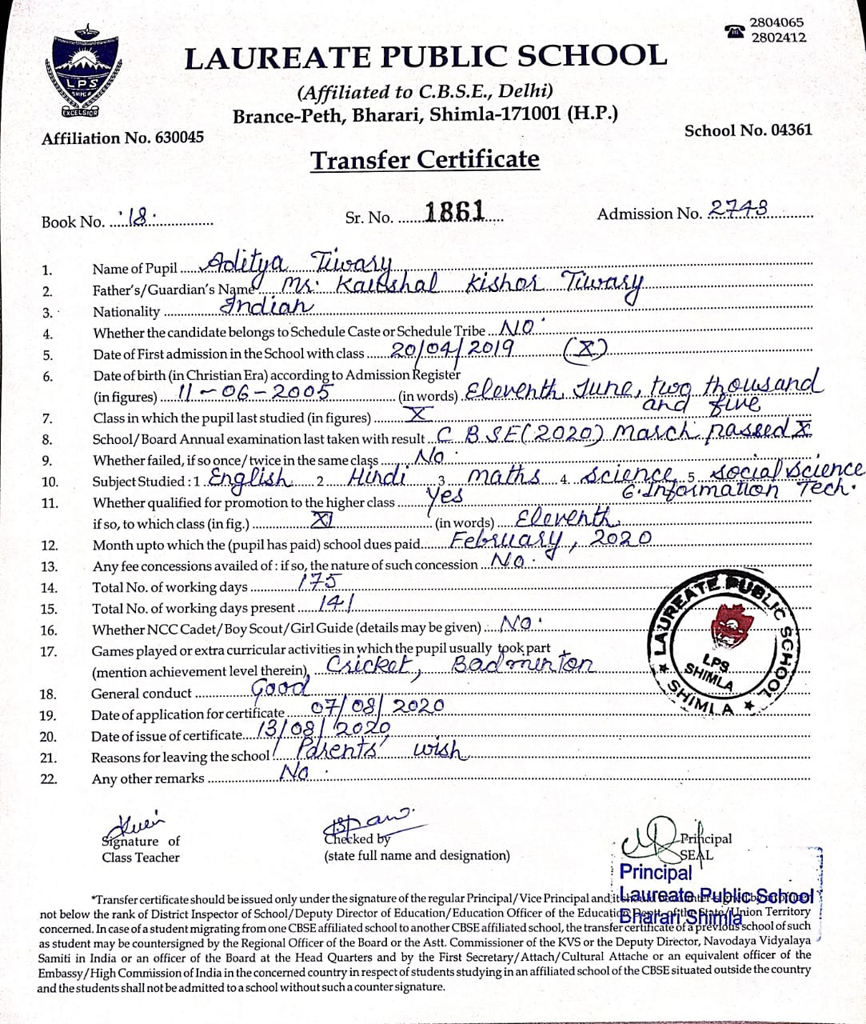 2804065
2802412
LPS
EXCELSIOR
LAUREATE PUBLIC SCHOOL
(Affiliated to C.B.S.E., Delhi)
Brance-Peth, Bharari, Shimla-171001 (H.P.)
Affiliation No. 630045 School No. 04361
Transfer Certificate
Book No. '18. Sr. No. 1861 Admission No. 2743
1. Name of Pupil Aditya Tiwary
2. Father's/Guardian's Name Mr. Kaushal Kishor Tiwary
3. Nationality Indian
4. Whether the candidate belongs to Schedule Caste or Schedule Tribe NO.
5. Date of First admission in the School with class 20/04/2019 (X)
6. Date of birth (in Christian Era) according to Admission Register
(in figures) 11-06-2005 (in words) Eleventh June, two thousand
and five
7. Class in which the pupil last studied (in figures) X
8. School/Board Annual examination last taken with result C.B.SE(2020) March passed X
9. Whether failed, if so once/twice in the same class No.
10. Subject Studied : 1. English 2. Hindi 3. maths 4. Science 5. Social Science
6. Information Tech.
11. Whether qualified for promotion to the higher class Yes
if so, to which class (in fig.) XI (in words) Eleventh
12. Month upto which the (pupil has paid) school dues paid February, 2020
13. Any fee concessions availed of : if so, the nature of such concession No.
14. Total No. of working days 175
15. Total No. of working days present 141
16. Whether NCC Cadet/Boy Scout/Girl Guide (details may be given) No.
17. Games played or extra curricular activities in which the pupil usually took part
(mention achievement level therein) Cricket, Badminton
18. General conduct Good
19. Date of application for certificate 07/08/2020
20. Date of issue of certificate 13/08/2020
21. Reasons for leaving the school Parents' wish
22. Any other remarks No.
LAUREATE PUBLIC SCHOOL
LPS
SHIMLA
★ SHIMLA ★
Signature of
Class Teacher
Checked by
(state full name and designation)
Principal
SEAL
Principal
Laureate Public School
Bharari Shimla
*Transfer certificate should be issued only under the signature of the regular Principal/Vice Principal and it
not below the rank of District Inspector of School/Deputy Director of Education/Education Officer of the Education Deptt. of the State/Union Territory
concerned. In case of a student migrating from one CBSE affiliated school to another CBSE affiliated school, the transfer certificate of a previous school of such
as student may be countersigned by the Regional Officer of the Board or the Astt. Commissioner of the KVS or the Deputy Director, Navodaya Vidyalaya
Samiti in India or an officer of the Board at the Head Quarters and by the First Secretary/Attach/Cultural Attache or an equivalent officer of the
Embassy/High Commission of India in the concerned country in respect of students studying in an affiliated school of the CBSE situated outside the country
and the students shall not be admitted to a school without such a counter signature.